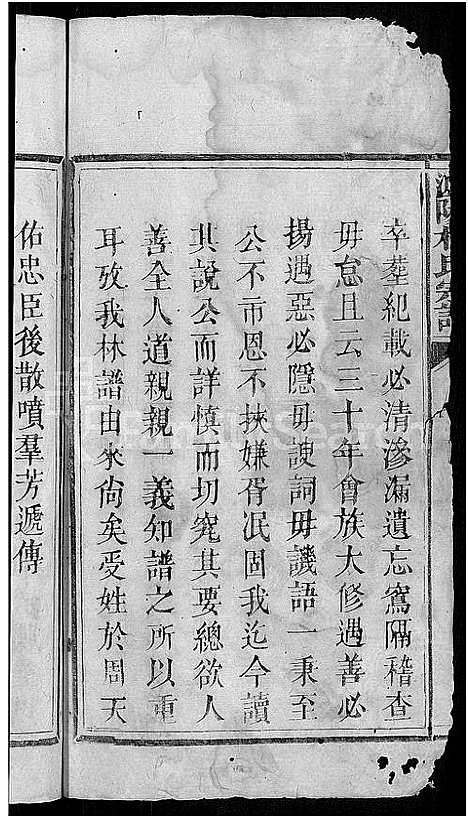 林氏宗譜
卒塟紀載必清滲漏遺忘寫隔稽查
毋怠且云三十年會族大修遇善必
揚遇惡必隱毋諛詞毋譏語一秉至
公不市恩不挾嫌胥泯固我迄今讀
其說公而詳慎而切究其要總欲人
善全人道親親一義知譜之所以重
耳攷我林譜由來尙矣受姓於周天
佑忠臣後散噴羣芳遞傳